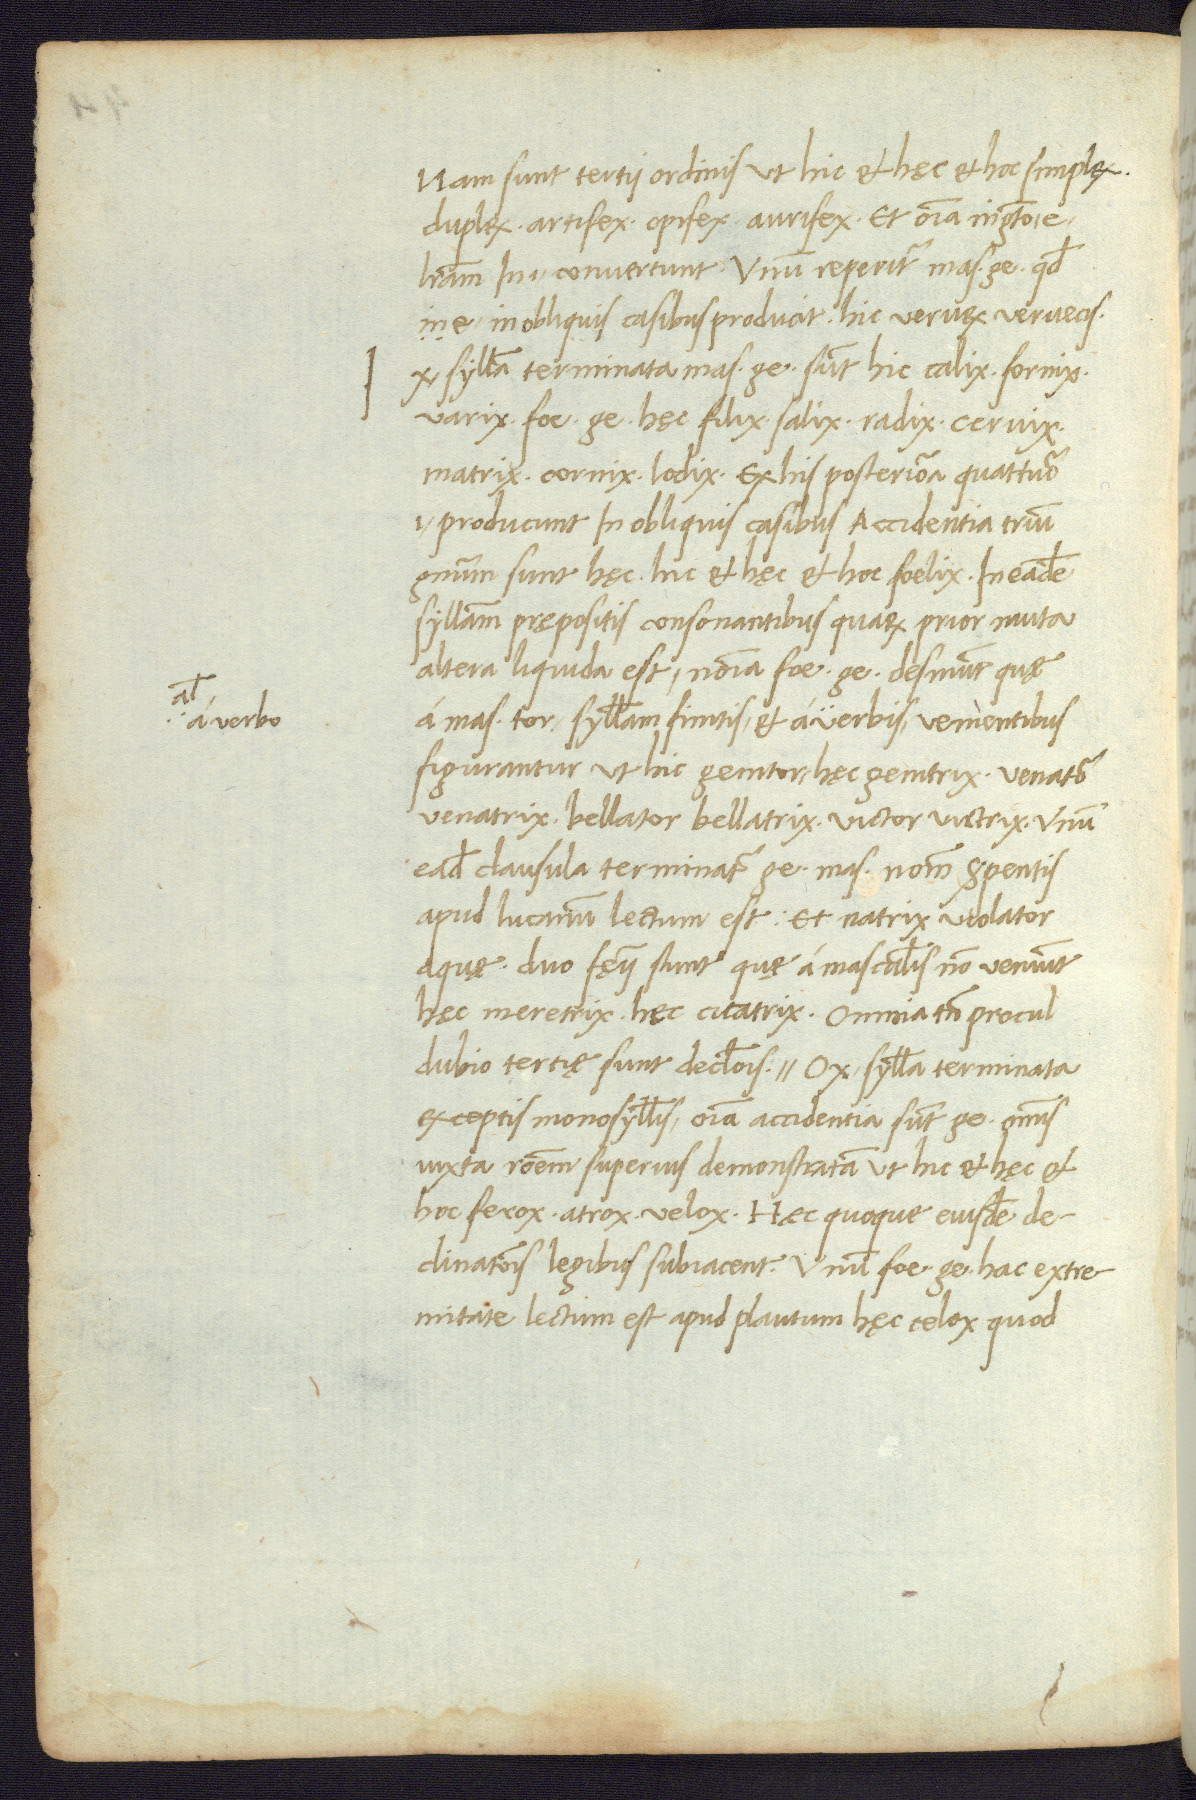 Nam sunt tertij ordinis ut hic & hęc & hoc simplex.
duplex. artifex. opifex. aurifex. Et oīa in gtō e,
lrām In, i, convertunt. Vnū reperit᷑ mas. ge. qđ
in e, in obliquis casibus producit. hic vervex vervecis.
I
x, syllā terminata mas. ge. sūt hic calix. fornix.
varix. foe. ge. hęc filix. salix. radix. cervix.
matrix. cornix. lodix. Ex his posteriōa quattuō
i, producunt In obliquis casibus Accidentia triū
gnūm sunt hęc. hic & hęc & hoc foelix. In eādē
syllām prępositis consonantibus quaꝝ prior muta
altera liquida est, nōīa foe. ge. desinūt quę
al̄
á verbo
á mas. tor, syllam finitis, & á verbis, venientibus
figurantur ut hic genitor, hęc genitrix. venatō
venatrix. bellator bellatrix. victor victrix. Vnū
eađ clausula terminat᷑ ge. mas. nom̄ sꝑpentis
apud lucanum lectum est: Et natrix violator
aquę. duo fęij sunt quę á masculis nō veniūt
hęc meretrix. hęc cicatrix. Omnia tn̄ procul
dubio tertię sunt declōis. // Ox, sylla terminata
exceptis monosyllis, oīa accidentia sūt ge. om̄is
iuxta rōem superius demonstratā ut hic & hęc &
hoc ferox. atrox. velox. Hæc quoque eiusdē de-
clinatōis legibus subiacent. Vnū foe. ge. hac extre-
mitate lectum est apud plautum hęc celox quod